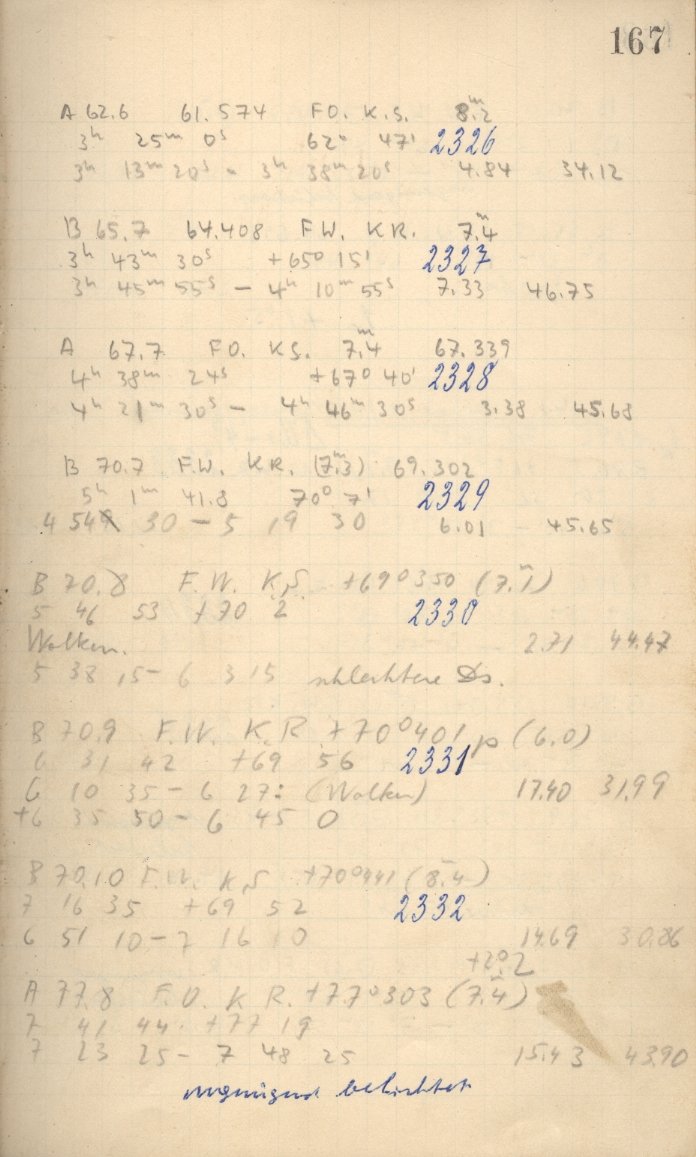 167
A 62.6 61.574 F.O. K.S. 8.ᵐ2
3ʰ 25ᵐ 0ˢ 62° 47' 2326
3ʰ 13ᵐ 20ˢ - 3ʰ 38ᵐ 20ˢ 4.84 34.12
B 65.7 64.408 F.W. K.R. 7.ᵐ4
3ʰ 43ᵐ 30ˢ +65° 15' 2327
3ʰ 45ᵐ 55ˢ - 4ʰ 10ᵐ 55ˢ 7.33 46.75
A 67.7 F.O. K.S. 7.ᵐ4 67.339
4ʰ 38ᵐ 24ˢ +67° 40' 2328
4ʰ 21ᵐ 30ˢ - 4ʰ 46ᵐ 30ˢ 3.38 45.68
B 70.7 F.W. K.R. (7.ᵐ3) 69.302
5ʰ 1ᵐ 41.8 70° 7' 2329
4 54 30 - 5 19 30 6.01 45.65
B 70.8 F.W. K.S. +69°350 (7.ᵐ1)
5 46 53 +70 2 2330
Wolken. 2.71 44.47
5 38 15 - 6 3 15 schlechtere Ds.
B 70.9 F.W. K.R. +70°401 p (6.0)
6 31 42 +69 56 2331
6 10 35 - 6 27: (Wolken) 17.40 31.99
+6 35 50 - 6 45 0
B 70.10 F.W. K.S. +70°441 (8.ᵐ4)
7 16 35 +69 52 2332
6 51 10 - 7 16 10 14.69 30.86
+2°.2
A 77.8 F.O. K.R. +77°303 (7.ᵐ4)
7 41 44. +77 19
7 23 25 - 7 48 25 15.43 43.90
ungenügend belichtet